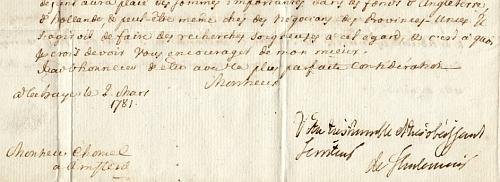 aura placé des sommes importantes dans les fonds d'Angleterre,
d'hollande & peut être même chez des Negocians des Provinces-Unies. Il
s'agiroit de faire des recherches soigneuses a cet égard, & c'est à quoi
je crois devoir Vous encourager de mon mieux.
J'ai l'honneur d'être avec la plus parfaite Consideration
Monsieur
a la haye le 2 Mars
1781.
Votre très humble et très obéissant
Serviteur
de
Monsieur Chomel
à Amsterd